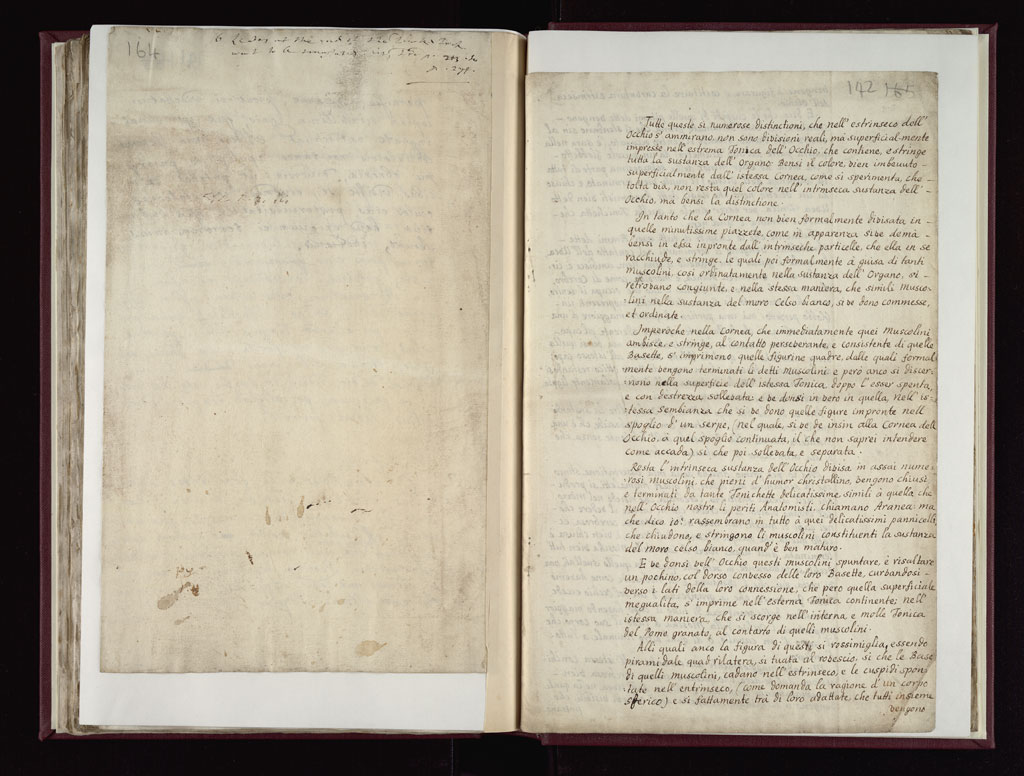 164
6 Leaves at the end of the
p. 273. do
p. 277.
142 165
Tutte queste si numerose distinctioni, che nell' estrinseco dell'
Occhio s' ammirano, non sono divisioni reali, mà superficialmente
impresse nell' estrema Tonica dell' Occhio, che contiene, e stringe
tutta la sustanza dell' Organo. Bensi il colore, vien imbevuto
superficialmente dall' istessa Cornea, come si sperimenta, che
tolta via, non resta quel colore nell' intrinseca sustanza dell'
Occhio, mà bensi la distinctione.
In tanto che la Cornea non vien formalmente divisata in
quelle minutissime piazzete, come in apparenza si ve de mà
bensi in essa inpronte dall' intrinseche particelle, che ella en se
racchiude, e stringe, le quali poi formalmente à guisa di tanti
Muscolini, cosi ordinatamente nella sustanza dell' Organo, si
retrovano congiunte, e nella stessa maniera, che simili Musco-
lini nella sustanza del moro Celso bianco, si ve dono commesse,
et ordinate.
Imperoche nella Cornea, che immediatamente quei Muscolini
ambisce, e stringe, al contatto perseverante, e consistente di quelle
Basette, s' imprimono quelle figurine quadre, dalle quali formal-
mente vengono terminati li detti Muscolini: e però anco si discer-
nono nella superficie dell' istessa Tonica doppo l' esser spenta,
e con destrezza sollevata: e ve donsi in vero in quella, nell' is-
tessa sembianza che si ve dono quelle figure impronte nell
spoglio d' un serpe, (nel quale, si ve de insin alla Cornea dell
Occhio, à quel spoglio continuata, il che non saprei intendere
come accada) si che poi sollevata, e separata.
Resta l' intrinseca sustanza dell' Occhio divisa in assai nume-
rosi muscolini, che pieni d' humor christallino, vengono chiusi
e terminati da tante Tonichette delicatissime, simili à quella, che
nell' Occhio nostro li periti Anatomisti, chiamano Aranea: ma
che dico io? rassembrano in tutto à quei delicatissimi pannicelli
che chiudono, e stringono li muscolini constituenti la sustanza
del moro celso bianco, quand' è ben maturo.
E ve donsi nell' Occhio questi muscolini spuntare, è risaltare
un pochino, col dorso convesso delle loro Basette, curvandosi
verso i lati della loro connessione, che però quella superficiale
inegualità, s' imprime nell' esterna Tonica continente: nell'
istessa maniera, che si scorge nell' interna, e molle Tonica
del Pomo granato, al contatto di quelli muscolini.
Alli quali anco la figura di questi si rossimiglia, essendo
piramidale, quadrilatera, situata al rovescio, si che le Base
di quelli muscolini, cadano nell' estrinseco, e le cuspidi spon
tate nell' entrinseco, (come domanda la ragione d' un corpo
sferico) e si fattamente trà di loro adattate, che tutti insieme
vengono